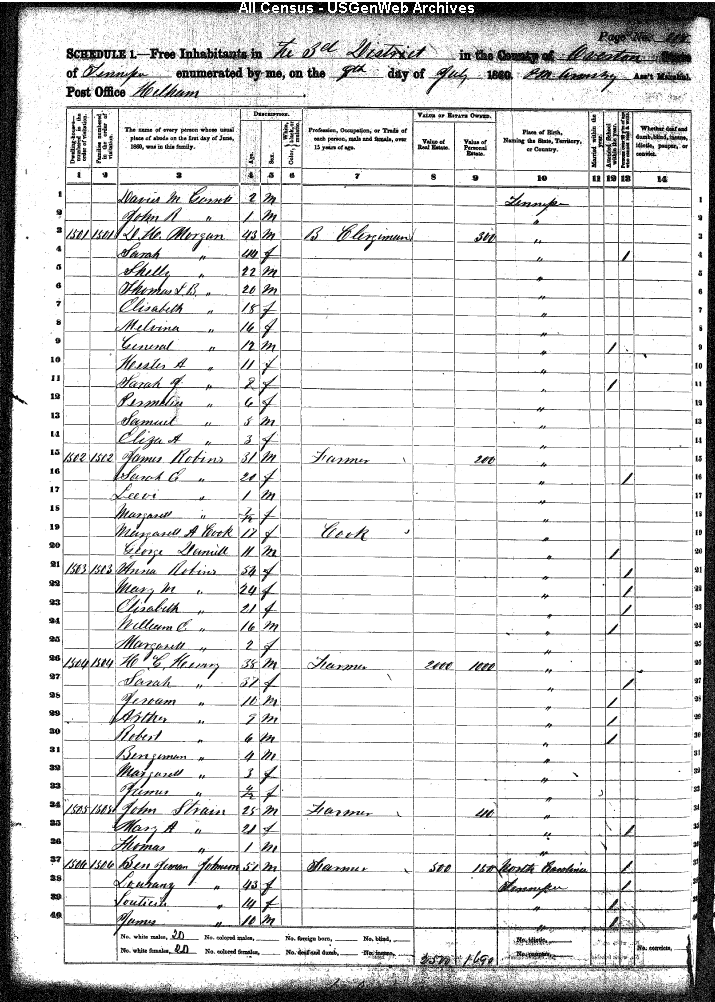 All Census - USGenWeb Archives
Page No.
SCHEDULE 1.—Free Inhabitants in The 3d District in the County of Overton State
of Tennessee enumerated by me, on the 9th day of July 1860. Ass't Marshal.
Post Office Hilham
DESCRIPTION. VALUE OF ESTATE OWNED.
Dwelling-houses—numbered in the order of visitation. Families numbered in the order of visitation. The name of every person whose usual place of abode on the first day of June, 1860, was in this family. Age. Sex. Color, White, black, or mulatto. Profession, Occupation, or Trade of each person, male and female, over 15 years of age. Value of Real Estate. Value of Personal Estate. Place of Birth, Naming the State, Territory, or Country. Married within the year. Attended School within the year. Whether deaf and dumb, blind, insane, idiotic, pauper, or convict.
1 2 3 4 5 6 7 8 9 10 11 12 13 14
1 Davis M 2 M Tennessee 1
2 John R " 1 M " 2
3 1501 1501 Morgan 43 M B Clergiman 300 " 3
4 Sarah " 44 f " 1 4
5 Shelly " 22 M " 5
6 Thomas L B, " 20 M " 6
7 Elisabeth " 18 f " 7
8 Melvina " 16 f " 8
9 General " 12 M " 1 9
10 Hester A " 11 f " 10
11 Sarah J " f " 1 11
12 Permelia " 6 f " 12
13 Samuel " 5 M " 13
14 Eliza A " 3 f " 14
15 1502 1502 James Robins 31 M Farmer 200 " 15
16 Sarah C " 20 f " 1 16
17 Leevi " 1 M " 17
18 Margarett " f " 18
19 Margarett A Cook 17 f Cook " 19
20 George 11 M " 1 20
21 1503 1503 Anna Robins 54 f " 1 21
22 Mary M " 24 f " 1 22
23 Elisabeth " 21 f " 1 23
24 William C " 16 M " 1 24
25 Margarett " 2 f " 25
26 1504 1504 H C Henry 38 M Farmer 2000 1000 " 26
27 Sarah " 31 f " 1 27
28 " 10 M " 1 28
29 " 7 M " 1 29
30 Robert " 6 M " 1 30
31 Bengeman " 4 M " 31
32 Margarett " 3 f " 32
33 James " f " 33
34 1505 1505 John Strain 25 M Farmer 40 " 34
35 Mary A " 21 f " 1 35
36 Thomas " 1 M " 36
37 1506 1506 Benjeman Johnson 51 M Farmer 500 150 North Carolina 1 37
38 " 43 f Tennessee 1 38
39 " 14 f " 1 39
40 James " 10 M " 1 40
No. white males, 20 No. colored males, No. foreign born, No. blind, No. idiotic, No. convicts,
No. white females, 20 No. colored females, No. deaf and dumb, No. insane, 2500 1690 No. paupers,